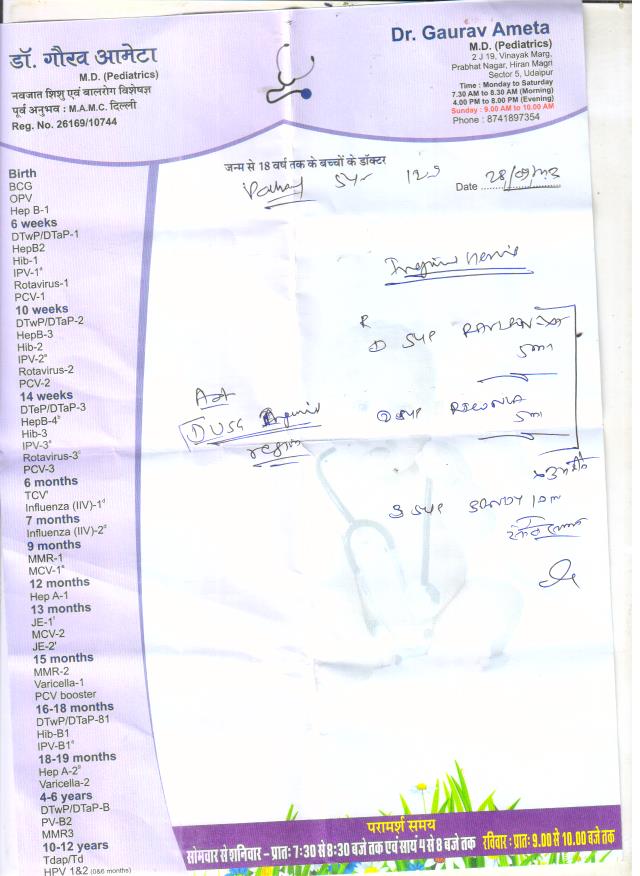 डॉ. गौरव आमेटा
M.D. (Pediatrics)
नवजात शिशु एवं बालरोग विशेषज्ञ
पूर्व अनुभव : M.A.M.C. दिल्ली
Reg. No. 26169/10744
Dr. Gaurav Ameta
M.D. (Pediatrics)
2 J 19, Vinayak Marg,
Prabhat Nagar, Hiran Magri
Sector 5, Udaipur
Time : Monday to Saturday
7.30 AM to 8.30 AM (Morning)
4.00 PM to 8.00 PM (Evening)
Sunday : 9.00 AM to 10.00 AM
Phone : 8741897354
जन्म से 18 वर्ष तक के बच्चों के डॉक्टर
Date
Birth
BCG
OPV
Hep B-1
6 weeks
DTwP/DTaP-1
HepB2
Hib-1
IPV-1
Rotavirus-1
PCV-1
10 weeks
DTwP/DTaP-2
HepB-3
Hib-2
IPV-2
Rotavirus-2
PCV-2
14 weeks
DTeP/DTaP-3
HepB-4
Hib-3
IPV-3
Rotavirus-3
PCV-3
6 months
TCV
Influenza (IIV)-1
7 months
Influenza (IIV)-2
9 months
MMR-1
MCV-1
12 months
Hep A-1
13 months
JE-1
MCV-2
JE-2
15 months
MMR-2
Varicella-1
PCV booster
16-18 months
DTwP/DTaP-81
Hib-B1
IPV-B1
18-19 months
Hep A-2
Varicella-2
4-6 years
DTwP/DTaP-B
PV-B2
MMR3
10-12 years
Tdap/Td
HPV 1&2 (0&6 months)
R
① SYP
5ml
② SYP
5ml
3 SYP
① USG
region
परामर्श समय
सोमवार से शनिवार – प्रातः 7:30 से 8:30 बजे तक एवं सायं 4 से 8 बजे तक रविवार : प्रातः 9.00 से 10.00 बजे तक